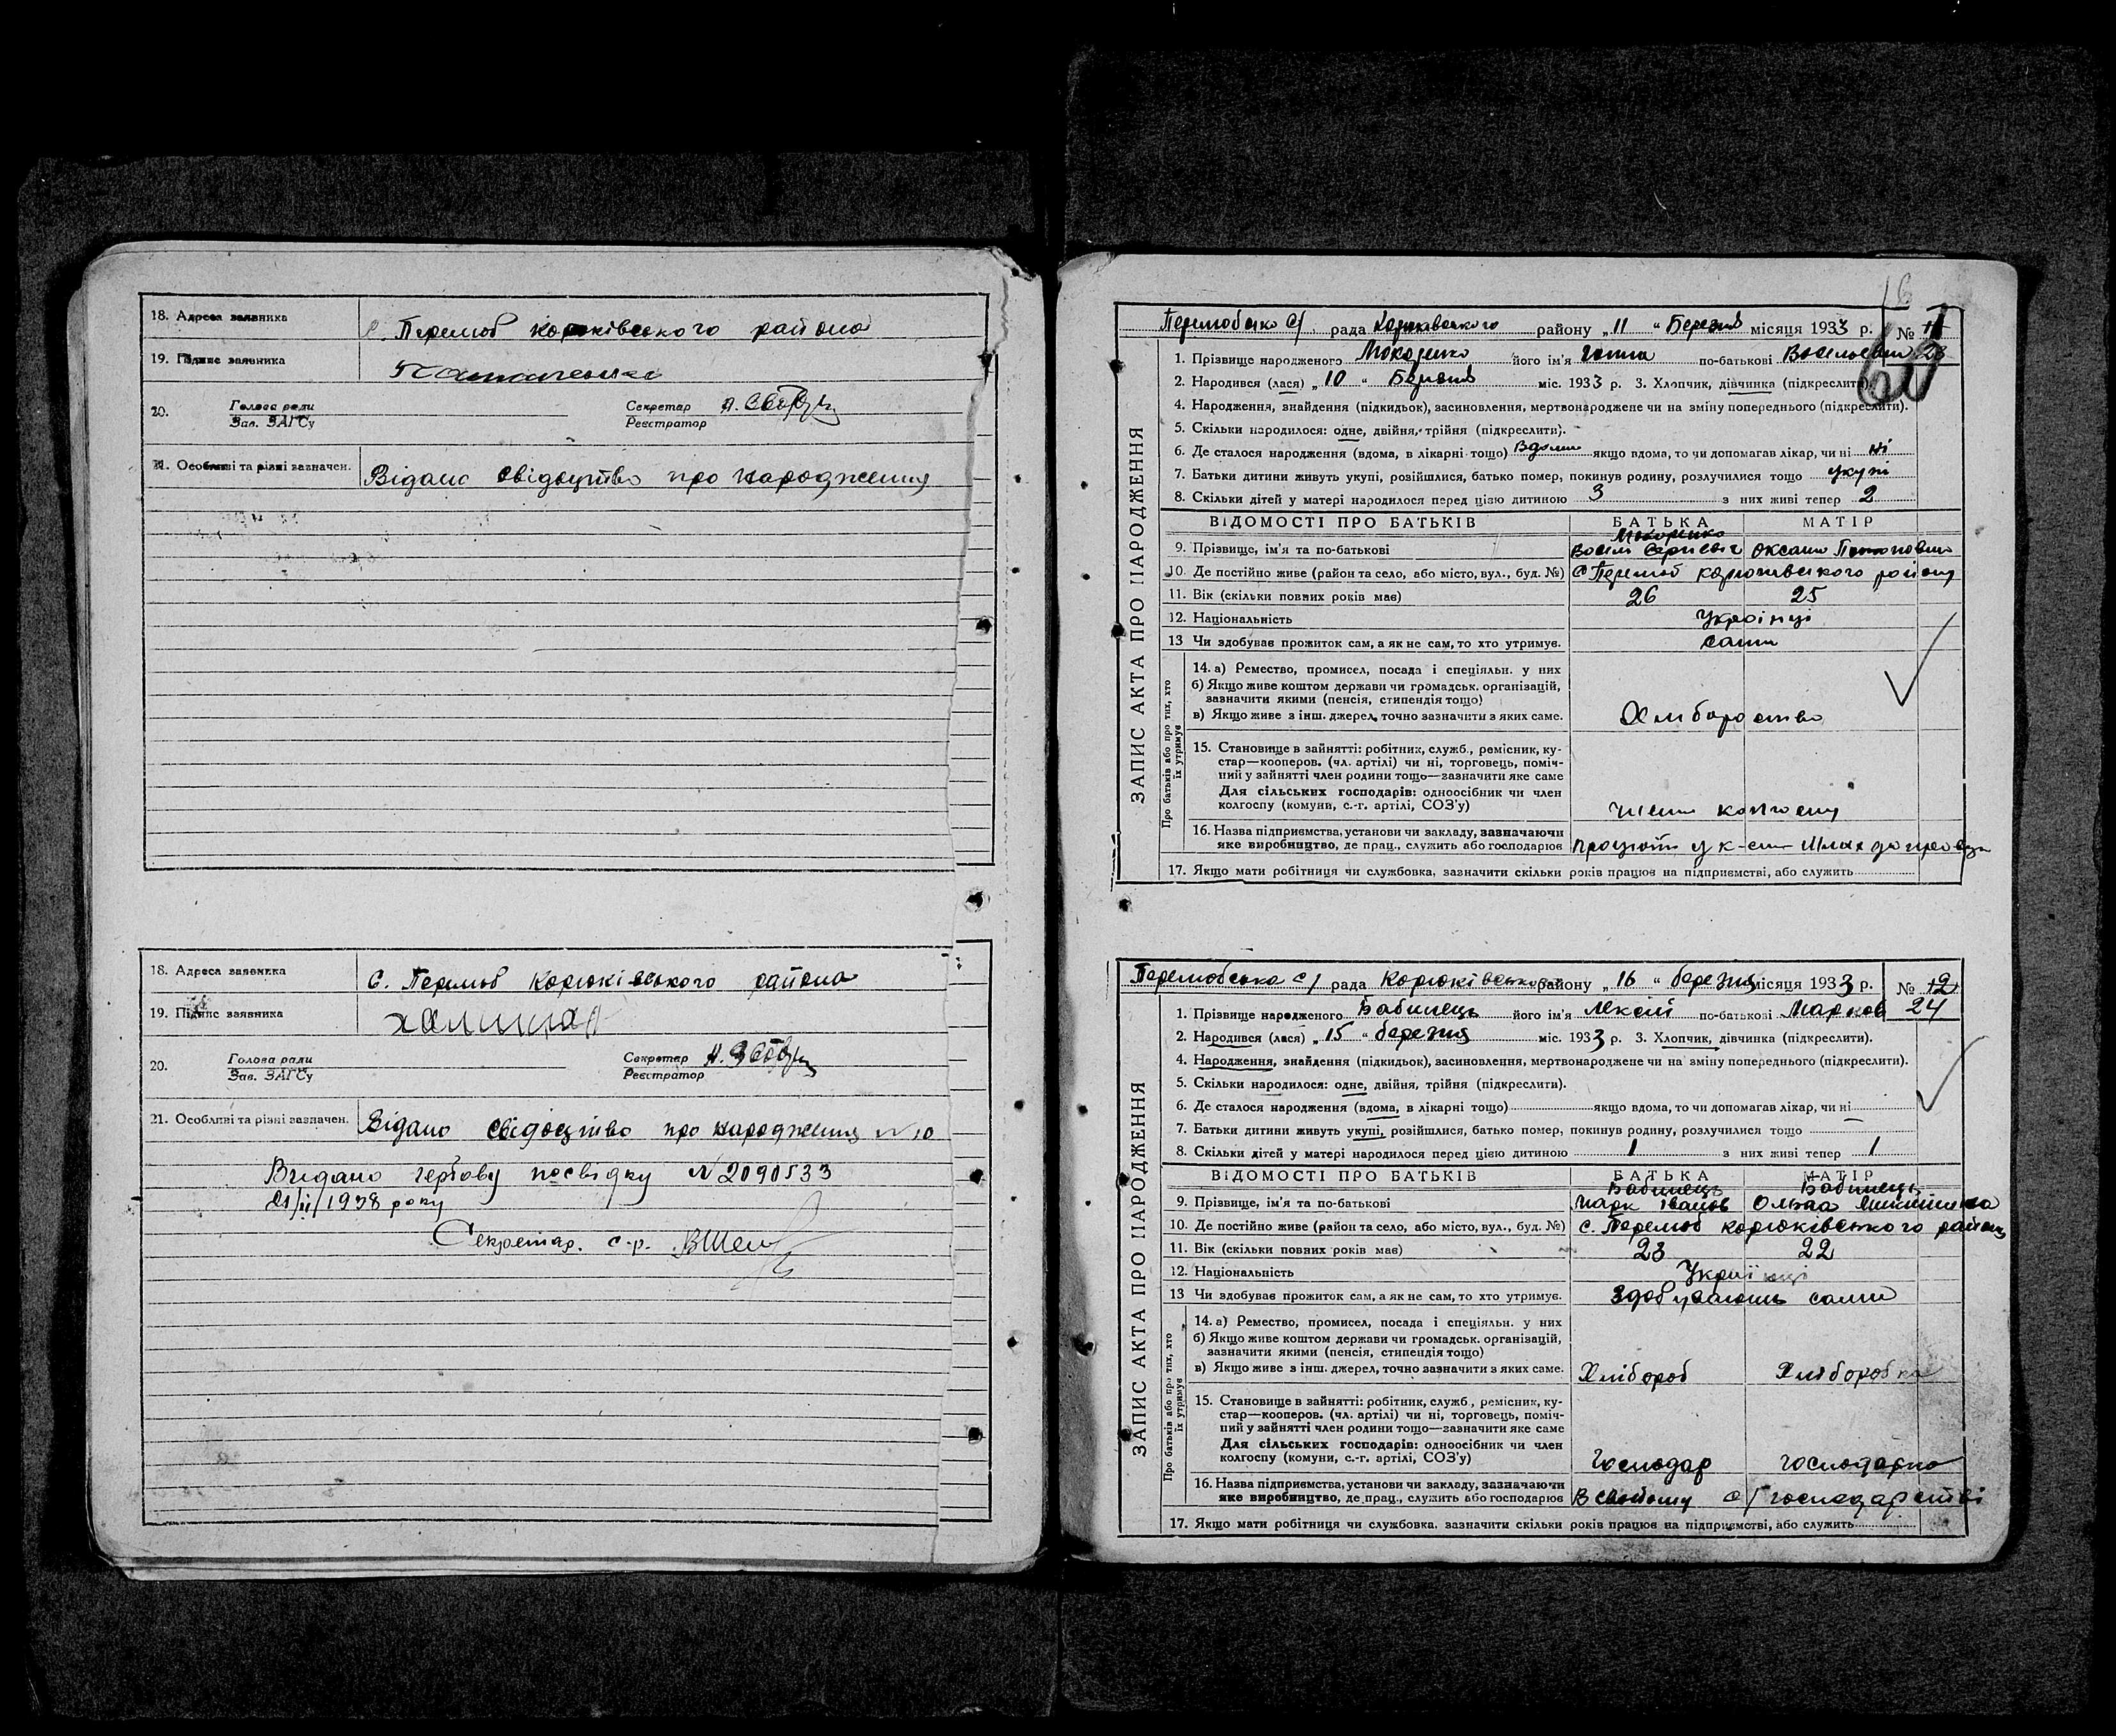 18. Адреса заявника
с. Перелюб корюківського района
19. Підпис заявника
20. Голова ради
Зав. ЗАГСу
Секретар
Реєстратор
21. Особливі та різні зазначен.
Відано свідоцтво про народження
18. Адреса заявника
С. Перелюб Корюківського района
19. Підпис заявника
20. Голова ради
Зав. ЗАГСу
Секретар
Реєстратор
21. Особливі та різні зазначен.
Відано свідоцтво про народження N 10
Видано посвідку N 2090533
21/II/1938 року
Секретар с-р.
ЗАПИС АКТА ПРО НАРОДЖЕННЯ
Перелюбська С/ рада Корюківського району „ 11 “ Березня місяця 1933 р. № 11
23
60
1. Прізвище народженого Макаренко його ім'я Ганна по-батькові
2. Народився (лася) „ 10 “ Березня міс. 1933 р. 3. Хлопчик, дівчинка (підкреслити).
4. Народження, знайдення (підкидьок), засиновлення, мертвонароджене чи на зміну попереднього (підкреслити).
5. Скільки народилося: одне, двійня, трійня (підкреслити).
6. Де сталося народження (вдома, в лікарні тощо) Вдома якщо вдома, то чи допомагав лікар, чи ні ні
7. Батьки дитини живуть укупі, розійшлися, батько помер, покинув родину, розлучилися тощо укупі
8. Скільки дітей у матері народилося перед цією дитиною 3 з них живі тепер 2
ВІДОМОСТІ ПРО БАТЬКІВ БАТЬКА МАТІР
9. Прізвище, ім'я та по-батькові
10. Де постійно живе (район та село, або місто, вул., буд. №) С Перелюб корюківського району
11. Вік (скільки повних років має) 26 25
12. Національність Українці
13 Чи здобував прожиток сам, а як не сам, то хто утримує. сами
Про батьків або про тих, хто їх утримує
14. а) Ремество, промисел, посада і спеціяльн. у них
б) Якщо живе коштом держави чи громадськ. організацій,
зазначити якими (пенсія, стипендія тощо)
в) Якщо живе з інш. джерел, точно зазначити з яких саме.
15. Становище в зайнятті: робітник, служб., ремісник, ку-
стар—кооперов. (чл. артілі) чи ні, торговець, поміч-
ний у зайнятті член родини тощо—зазначити яке саме
Для сільських господарів: одноосібник чи член
колгоспу (комуни, с.-г. артілі, СОЗ'у) члени колгоспу
16. Назва підприємства, установи чи закладу, зазначаючи
яке виробництво, де прац., служить або господарює
17. Якщо мати робітниця чи службовка, зазначити скільки років працює на підприємстві, або служить
ЗАПИС АКТА ПРО НАРОДЖЕННЯ
Перелюбська с/ рада Корюківського району „ 16 “ березня місяця 1933 р. № 12
24
1. Прізвище народженого Бабинець його ім'я Лексій по-батькові Марков
2. Народився (лася) „ 15 “ березня міс. 1933 р. 3. Хлопчик, дівчинка (підкреслити).
4. Народження, знайдення (підкидьок), засиновлення, мертвонароджене чи на зміну попереднього (підкреслити).
5. Скільки народилося: одне, двійня, трійня (підкреслити).
6. Де сталося народження (вдома, в лікарні тощо) якщо вдома, то чи допомагав лікар, чи ні
7. Батьки дитини живуть укупі, розійшлися, батько помер, покинув родину, розлучилися тощо
8. Скільки дітей у матері народилося перед цією дитиною 1 з них живі тепер 1
ВІДОМОСТІ ПРО БАТЬКІВ БАТЬКА МАТІР
Бабинець Бабинець
9. Прізвище, ім'я та по-батькові Марк Іванов Ольга
10. Де постійно живе (район та село, або місто, вул., буд. №) с. Перелюб корюківського району
11. Вік (скільки повних років має) 23 22
12. Національність Українці
13 Чи здобував прожиток сам, а як не сам, то хто утримує. Здобувають сами
Про батьків або про тих, хто їх утримує
14. а) Ремество, промисел, посада і спеціяльн. у них
б) Якщо живе коштом держави чи громадськ. організацій,
зазначити якими (пенсія, стипендія тощо)
в) Якщо живе з інш. джерел, точно зазначити з яких саме. Хлібороб Хліборобка
15. Становище в зайнятті: робітник, служб., ремісник, ку-
стар—кооперов. (чл. артілі) чи ні, торговець, поміч-
ний у зайнятті член родини тощо—зазначити яке саме
Для сільських господарів: одноосібник чи член
колгоспу (комуни, с.-г. артілі, СОЗ'у) Господар господарка
16. Назва підприємства, установи чи закладу, зазначаючи
яке виробництво, де прац., служить або господарює В свойому с/господарстві
17. Якщо мати робітниця чи службовка, зазначити скільки років працює на підприємстві, або служить